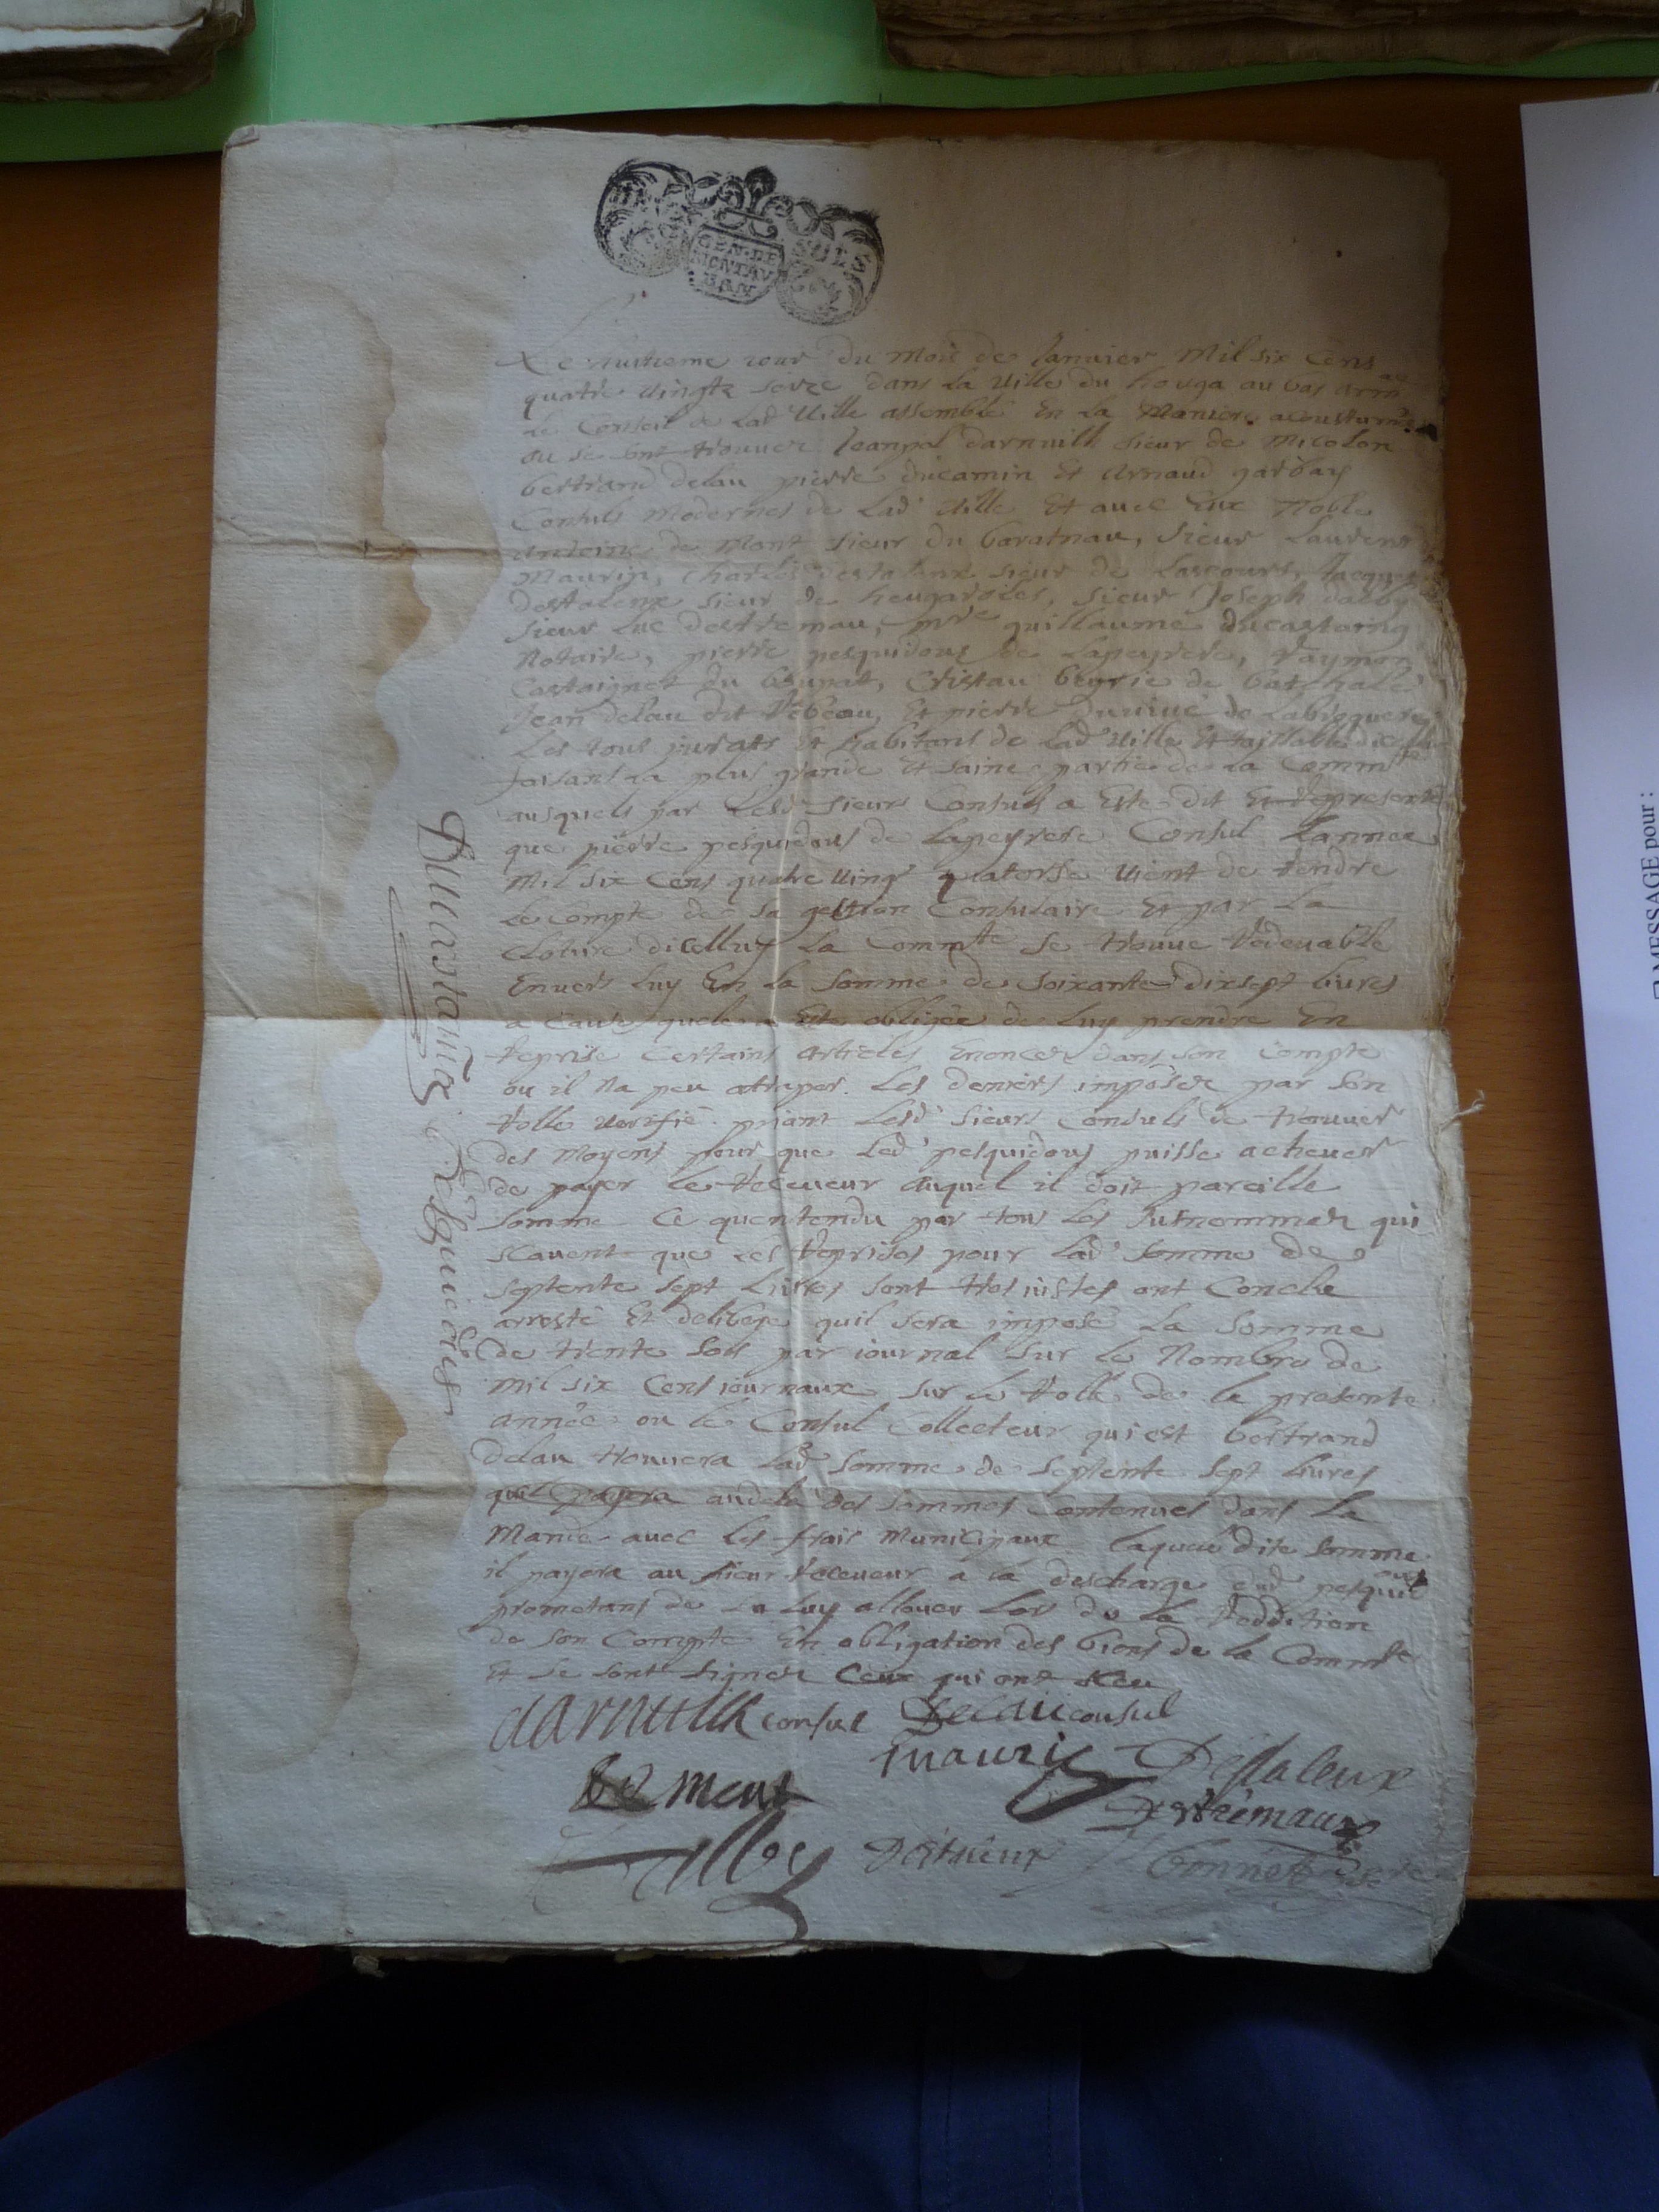 SOLS
GEN. DE
MONTAU
BAN
Le huitieme jour du Mois de Janvier Mil six Cens
quatre vingtz seize dans la ville du houga au bas arm
Le Conseil de lad' Ville assemblé En la Maniere acoustumée
ou se sont trouver Jeanpol darnuilh sieur de Micolon
bertrand delau pierre ducamin Et Arnaud garbay
Consuls Modernes de Lad' Ville Et avec Eux Noble
Antoine de Mont sieur du baratnau, sieur Laurens
Maurin, Charles destalenx sieur de Lascours, Jacques
destalenx sieur de heugaroles, sieur Joseph dalby
sieur Luc destremau, mre guillaume ducastaing
Notaire, pierre pesquidous de Lapeyrere, Raymon
Castaignet du, Cristau beyrie de
Jean delau dit, Et pierre de Labieguere
Les tous jurats Et habitans de Lad' Ville Et taillables
faisant La plus grande Et saine partie de La Commte
ausquels par Lesd' sieurs Consuls a Esté dit Et represente
que pierre pesquidous de Lapeyrere Consul Lannee
Mil six Cens quatre vingt quatorse vient de rendre
Le Compte de sa gestion Consulaire Et par La
Cloture dicelluy La Commte se trouve redevable
Envers Luy En La somme de soixante dixsept livres
a Cause quele a Este obligée de Luy prendre En
reprise Certains articles Enonces dans son Compte
ou il Na peu atraper Les deniers imposez par son
rolle verifié priant Lesd' sieurs Consuls de trouver
des Moyens pour que Led' pesquidous puisse achever
de payer Le receveur auquel il doit pareille
somme Ce quentendu par tous Les susnommez qui
scavent que Les reprises pour Lad' somme de
septente sept Livres sont tres justes ont Conclu
arresté Et deliberé quil sera imposé La somme
de trente sols par journal sur Le Nombre de
Mil six Cens journaux sur Le rolle de la presente
année ou le Consul Collecteur qui est bertrand
delau trouvera Lad' somme de septente sept livres
quil payera audela des sommes Contenues dans La
Mande avec Les frais Municipaux laquele dite somme
il payera au sieur receveur a la descharge dud' pesquidous
prometans de La Luy allouer Lors de La reddition
de son Compte En obligation des biens de la Commte
Et se sont signez Ceux qui ont sceu
darnuilh consul Delau consul
Maurin Destalenx
De Mont Destremau
Dalby Destalenx
Ducastaing